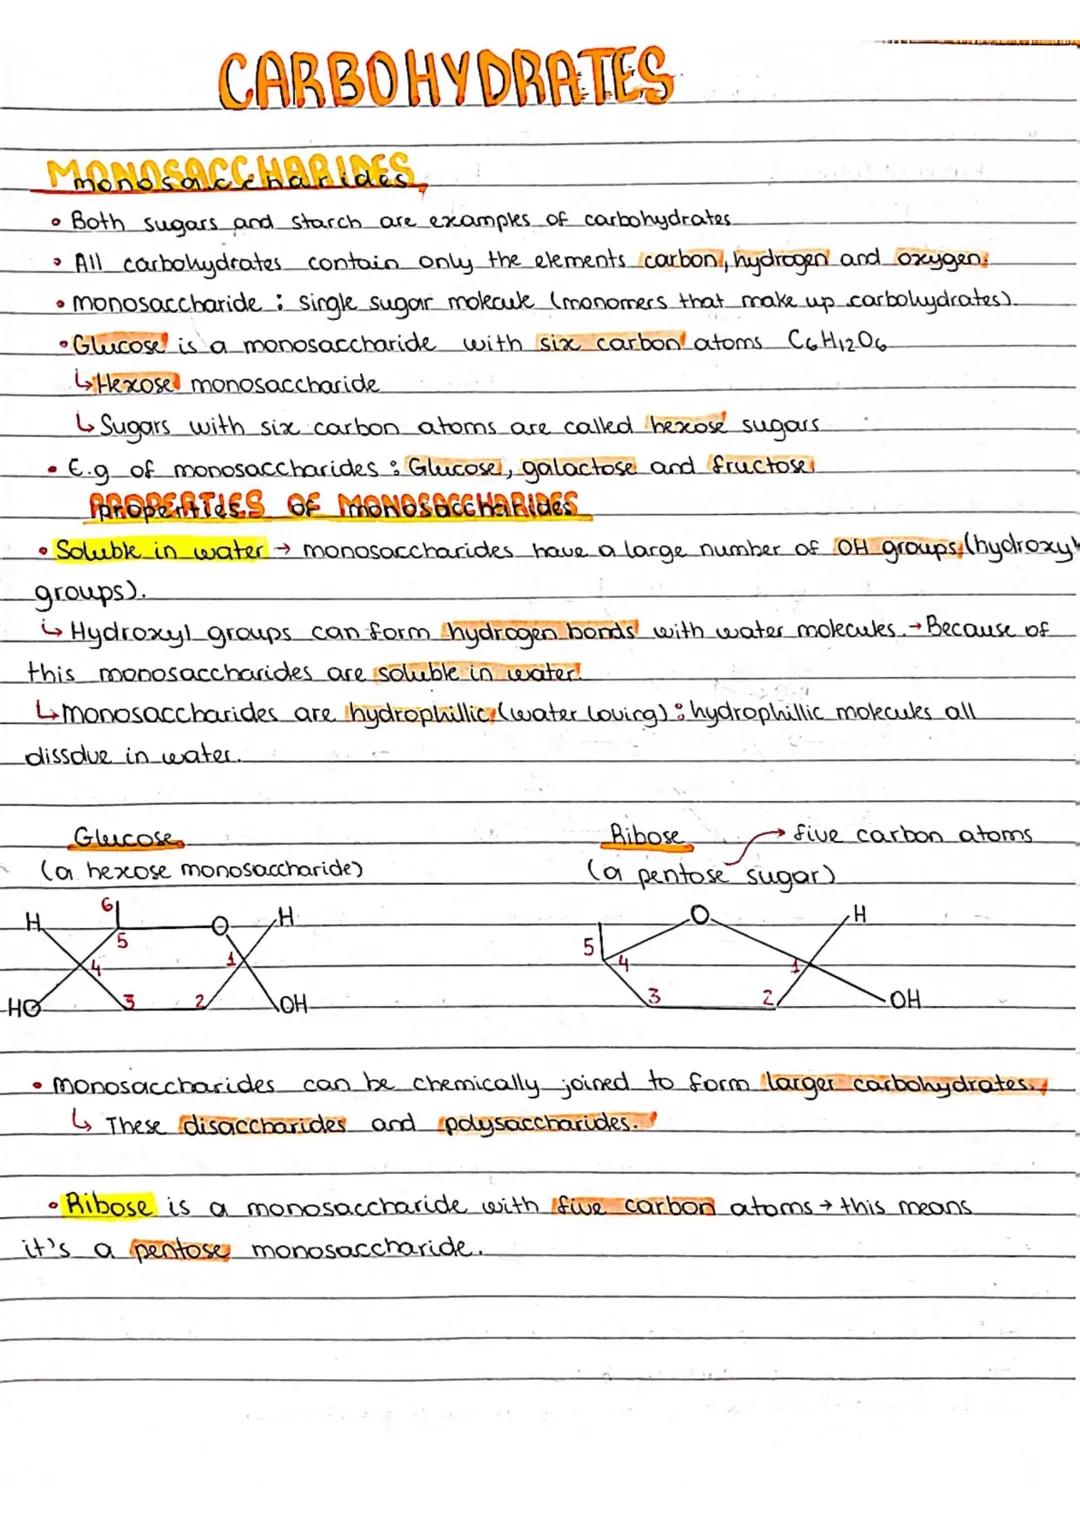 CARBOHYDRATES
MONOSACCHARIDES
monosaccharides
• Both sugars and starch are examples of carbohydrates
• All carbohydrates contain only the elements carbon, hydrogen and oxygen.
• monosaccharide : single sugar molecule (monomers that make up carbohydrates).
• Glucose is a monosaccharide with six carbon atoms C6H12O6
↳ Hexose monosaccharide
↳ Sugars with six carbon atoms are called hexose sugars
• E.g of monosaccharides : Glucose, galactose and fructose
PROPERTIES OF MONOSACCHARIDES
• Soluble in water → monosaccharides have a large number of OH groups (hydroxyl
groups).
↳ Hydroxyl groups can form hydrogen bonds with water molecules. → Because of
this monosaccharides are soluble in water.
↳ monosaccharides are hydrophillic (water loving) : hydrophillic molecules all
dissolve in water.
Glucose Ribose → five carbon atoms
(a hexose monosaccharide) (a pentose sugar)
H 6 5 O H 4 1 HO 3 2 OH
5 O H 4 1 3 2 OH
• monosaccharides can be chemically joined to form larger carbohydrates.
↳ These disaccharides and polysaccharides.
• Ribose is a monosaccharide with five carbon atoms → this means
it's a pentose monosaccharide.